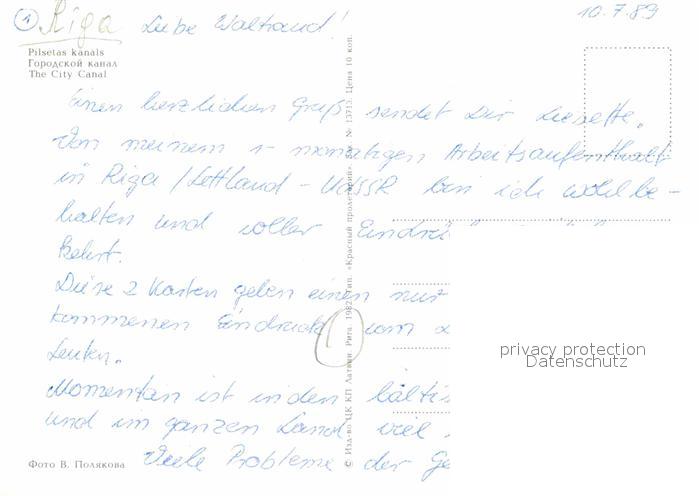 ① Riga
Liebe Waltraud!
10.7.89
Pilsetas kanals
Городской канал
The City Canal
Einen herzlichen Gruß sendet Dir Lieselotte.
Von meinem 1-monatigen Arbeitsaufenthalt
in Riga/Lettland-UdSSR bin ich wohlbe-
halten und voller Eindrü
kehrt.
Diese 2 Karten geben einen nur
kommenen Eindruck vom
Leuten.
Momentan ist in den balti
und im ganzen Land viel
Viele Probleme der Ge
Фото В. Полякова
© Изд-во ЦК КП Латвии. Рига. 1982. Тип. «Красный пролетарий» № 13713. Цена 10 коп.
privacy protection
Datenschutz